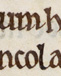 umh
ncola